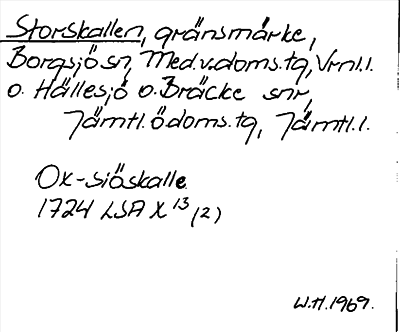 Storskallen, gränsmärke,
Borgsjö sn, Med.v.doms.tg, Vrnl.l.
o. Hällesjö o. Bräcke snr,
Jämtl. ö doms.tg, Jämtl.l.
Ox-siöskalle
1724 LSA X 13 (2)
W.H. 1969.